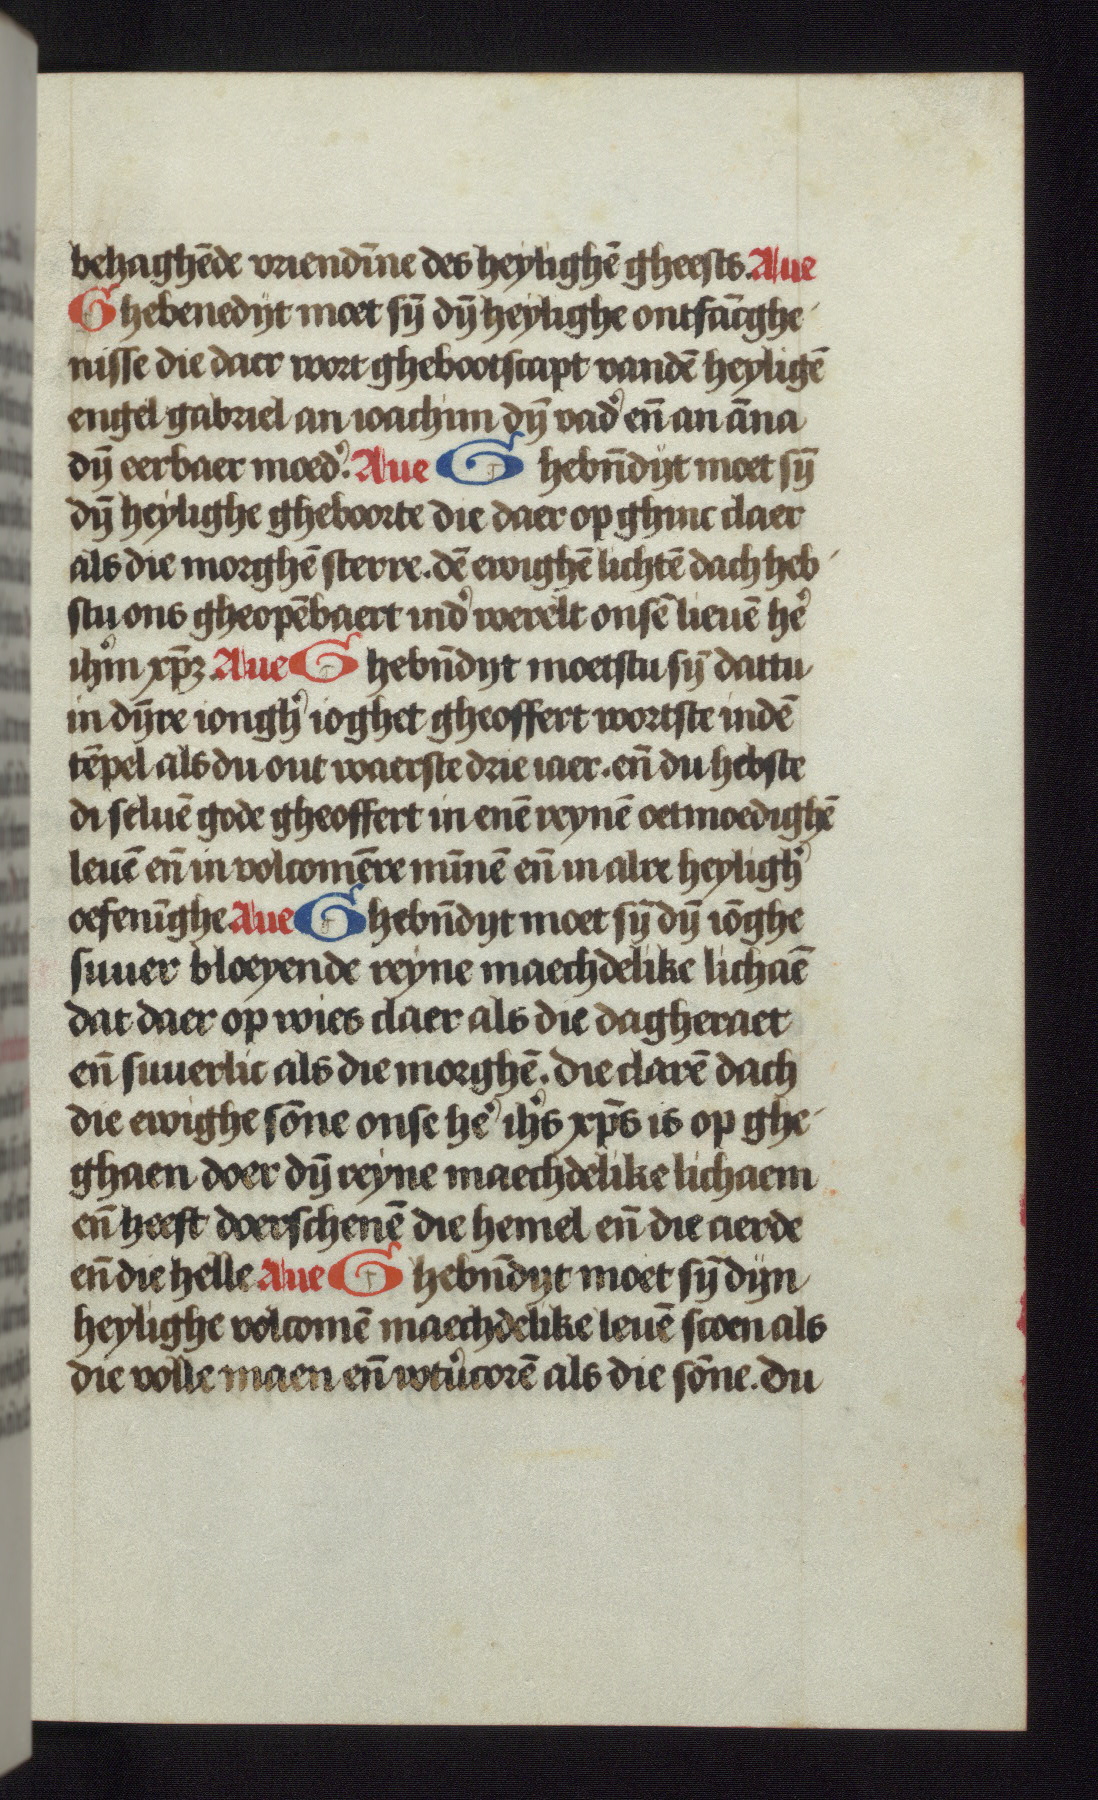 behaghēde vriendīne des heylighē gheests. Aue
Ghebenedijt moet sȳ dȳ heylighe ontfācghe
nisse die daer wort ghebootscapt vandē heyligē
engel gabriel an ioachim dȳ vad͛ en̄ an āna
dȳ eerbaer moed͛. Aue Ghebn̄dijt moet sȳ
dȳ heylighe gheboorte die daer op ghinc claer
als die morghē sterre. dē ewighē lichtē dach heb
stu ons gheopēbaert ind͛ werelt onsē lieuē he͛
ih͛m xp̄ꝫ. Aue Ghebn̄dijt moetstu sȳ dattu
in dȳre iongh͛ ioghet gheoffert wortste indē
tēpel als du out waerste drie iaer. en̄ du hebste
di seluē gode gheoffert in enē reynē oetmoedighē
leuē en̄ in volcomēre mīnē en̄ in alre heyligh͛
oefenīghe Aue Ghebn̄dijt moet sȳ dȳ iōghe
suuer bloeyende reyne maechdelike lichaē
dat daer op wies claer als die dagheraet
en̄ suuerlic als die morghē. die clarē dach
die ewighe sōne onse he͛ ih͛s xp̄s is op ghe
ghaen doer dȳ reyne maechdelike lichaem
en̄ heeft doerschenē die hemel en̄ die aerde
en̄ die helle Aue Ghebn̄dijt moet sȳ dijn
heylighe volcomē maechdelike leuē scoen als
die volle maen en̄ wtu͛corē als die sōne. du